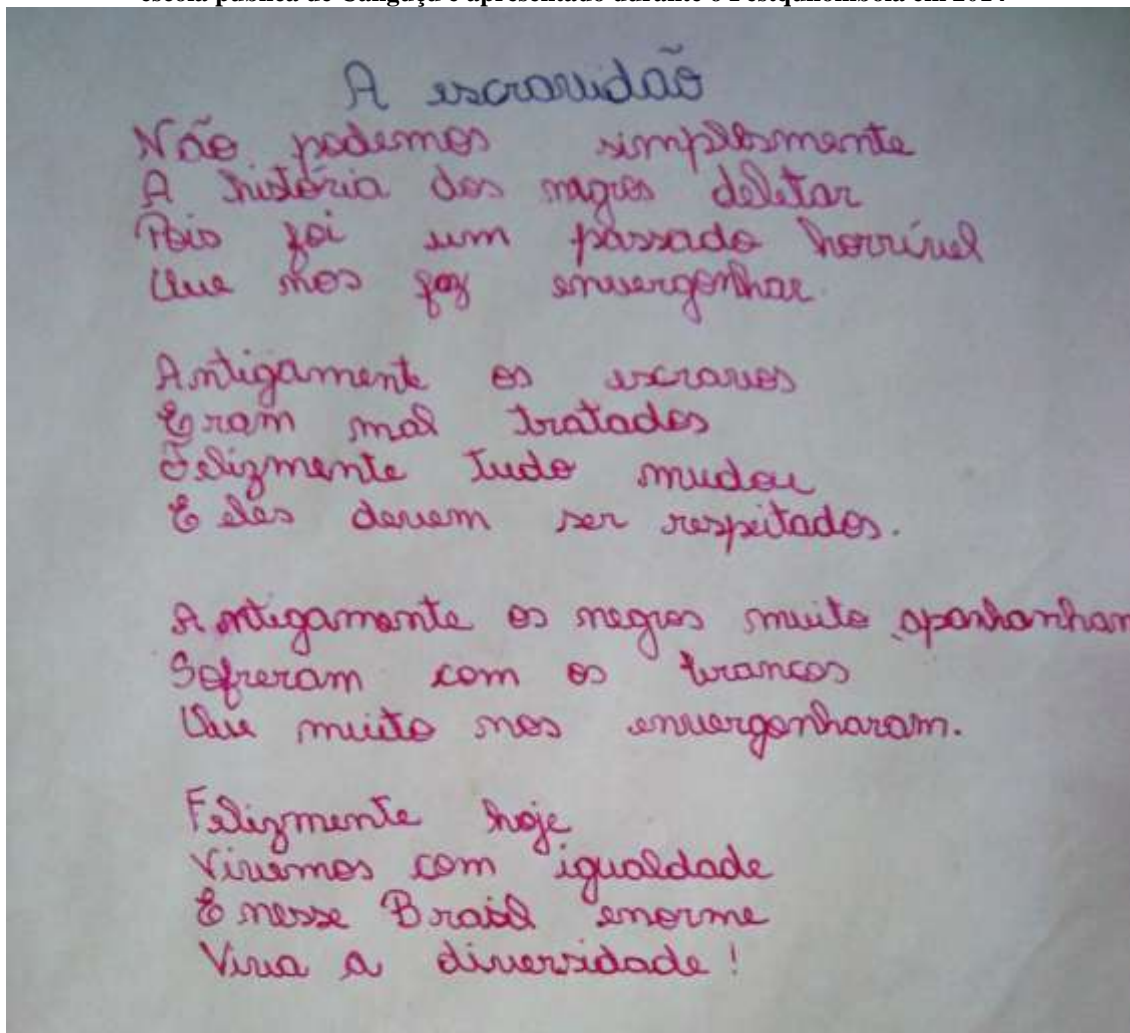 escola pública de Canguçu e apresentado durante o Festquilombola em 2014
A escravidão
Não podemos simplesmente
A história dos negros deletar
Pois foi um passado horrível
Que nos faz envergonhar.
Antigamente os escravos
Eram mal tratados
Felizmente tudo mudou
E eles devem ser respeitados.
Antigamente os negros muito apanhanham
Sofreram com os brancos
Que muito nos envergonharam.
Felizmente hoje
Vivemos com igualdade
E nesse Brasil enorme
Viva a diversidade!